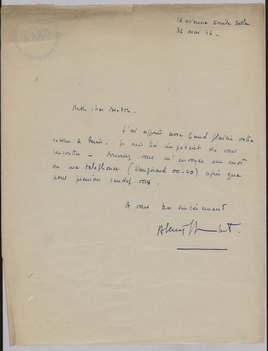 16 avenue Emile Zola
12 mai 46
Mon cher Masson
J'ai appris avec grand plaisir votre
retour à Paris. Je suis très impatient de vous
rencontrer – Pouvez vous m'envoyer un mot
ou me telephoner (Vaugirard 00-40) afin que
nous prenions rendez vous.
A vous très sincèrement.